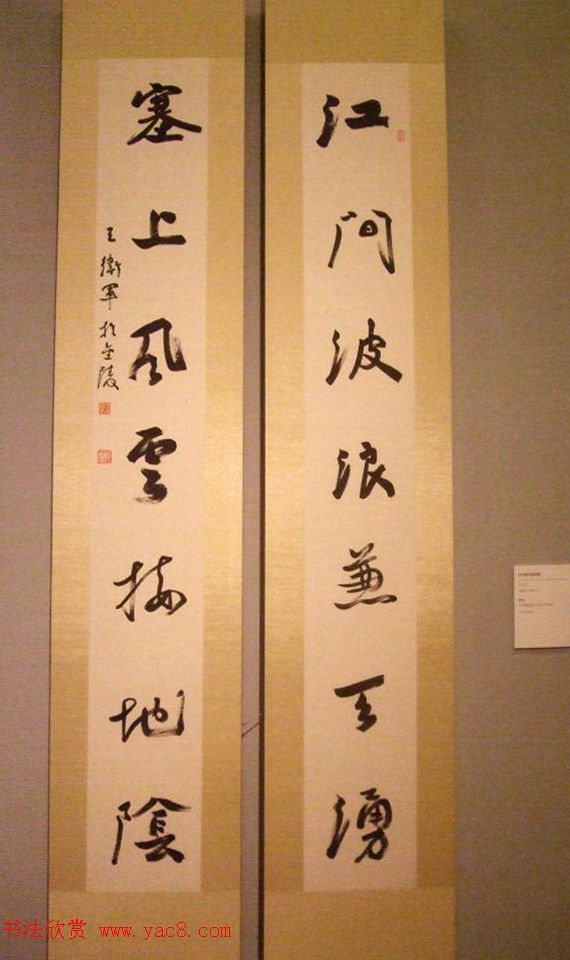 江間波浪兼天湧
塞上風雲接地陰
王衛軍於金陵
书法欣赏 www.yac8.com